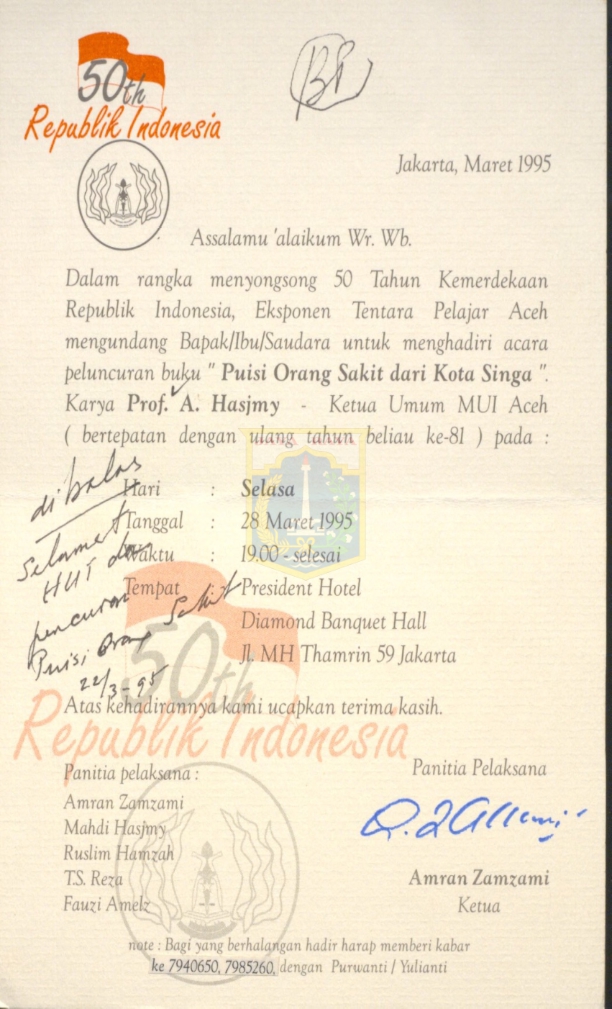 50th
Republik Indonesia
Jakarta, Maret 1995
Assalamu 'alaikum Wr. Wb.
Dalam rangka menyongsong 50 Tahun Kemerdekaan
Republik Indonesia, Eksponen Tentara Pelajar Aceh
mengundang Bapak/Ibu/Saudara untuk menghadiri acara
peluncuran buku " Puisi Orang Sakit dari Kota Singa ".
Karya Prof. A. Hasjmy - Ketua Umum MUI Aceh
( bertepatan dengan ulang tahun beliau ke-81 ) pada :
dibalas
Hari : Selasa
Selamat
Tanggal : 28 Maret 1995
HUT dan
Waktu : 19.00 - selesai
Tempat : President Hotel
Puisi Orang Sakit
Diamond Banquet Hall
22/3-95
Jl. MH Thamrin 59 Jakarta
50th
Republik Indonesia
Atas kehadirannya kami ucapkan terima kasih.
Panitia pelaksana :
Amran Zamzami
Mahdi Hasjmy
Ruslim Hamzah
T.S. Reza
Fauzi Amelz
Panitia Pelaksana
Amran Zamzami
Ketua
note : Bagi yang berhalangan hadir harap memberi kabar
ke 7940650, 7985260, dengan Purwanti / Yulianti